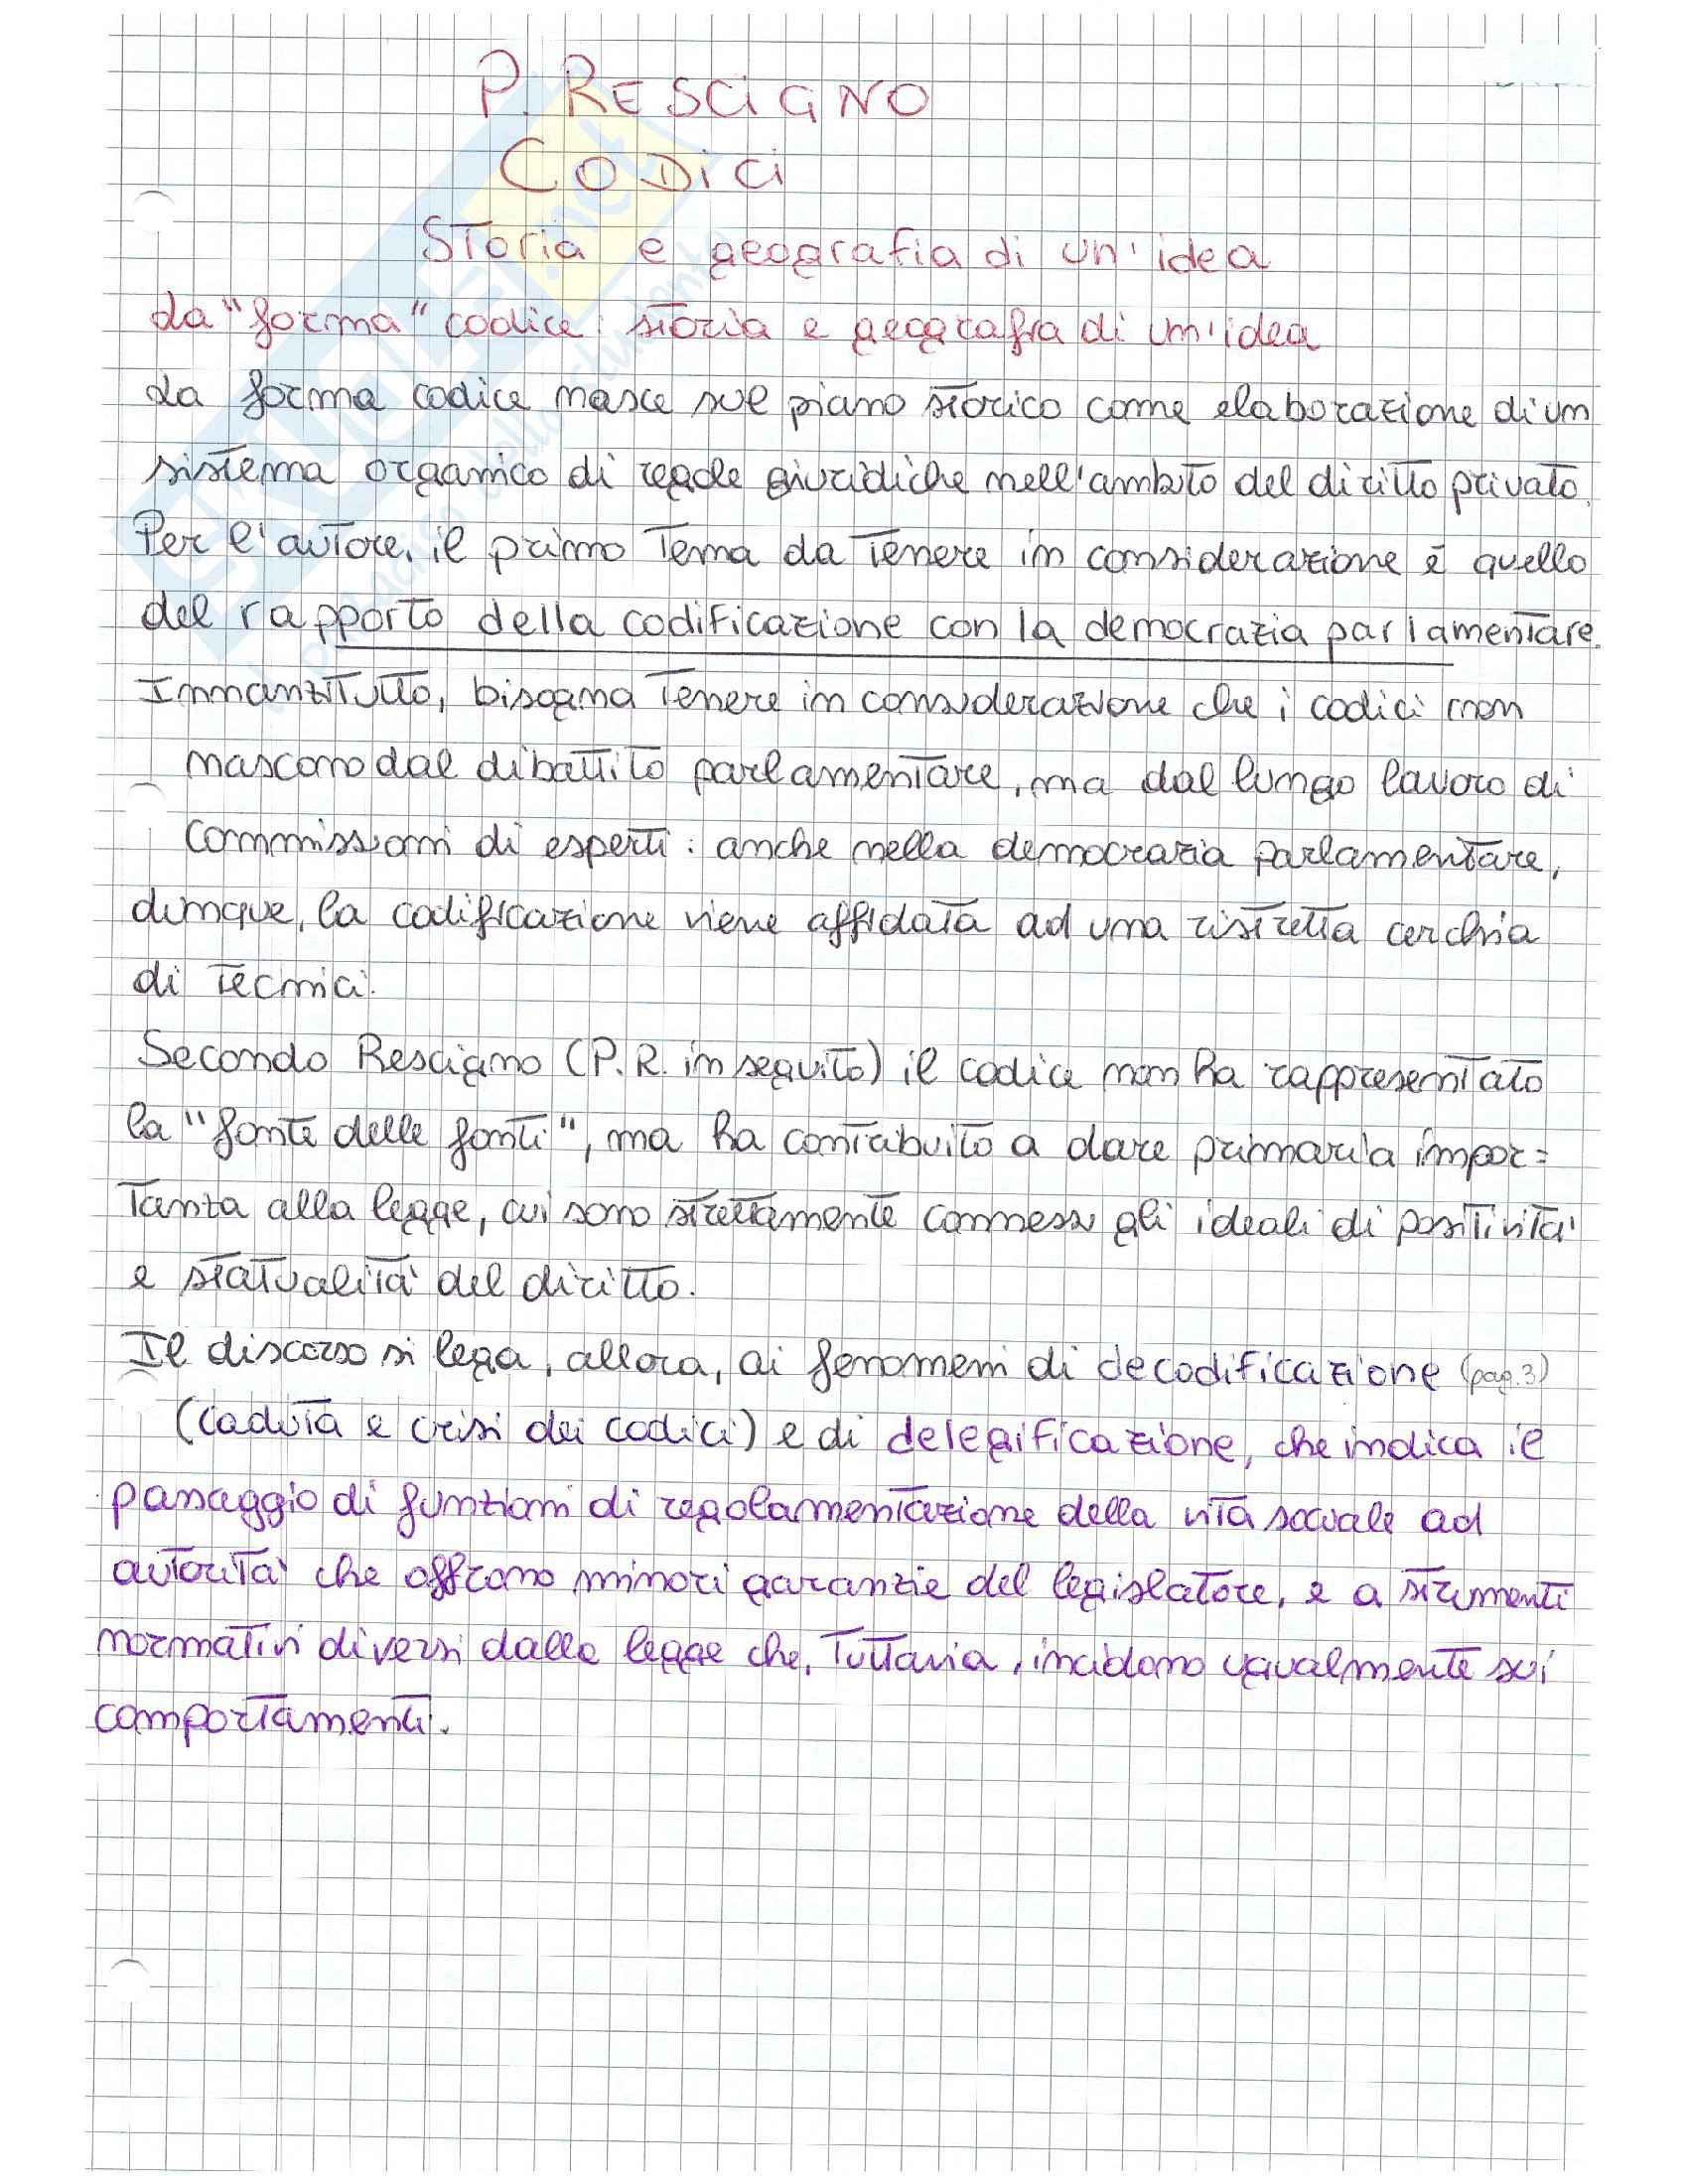 P. RESCIGNO
CODICI
Storia e geografia di un'idea
La "forma" codice: storia e geografia di un'idea
La forma codice nasce sul piano storico come elaborazione di un
sistema organico di regole giuridiche nell'ambito del diritto privato.
Per l'autore, il primo tema da tenere in considerazione è quello
del rapporto della codificazione con la democrazia parlamentare.
Innanzitutto, bisogna tenere in considerazione che i codici non
nascono dal dibattito parlamentare, ma dal lungo lavoro di
commissioni di esperti: anche nella democrazia parlamentare,
dunque, la codificazione viene affidata ad una ristretta cerchia
di tecnici.
Secondo Rescigno (P.R. in seguito) il codice non ha rappresentato
la "fonte delle fonti", ma ha contribuito a dare primaria impor=
tanza alla legge, cui sono strettamente connessi gli ideali di positività
e statualità del diritto.
Il discorso si lega, allora, ai fenomeni di decodificazione (pag.3)
(caduta e crisi dei codici) e di delegificazione, che indica il
passaggio di funzioni di regolamentazione della vita sociale ad
autorità che offrono minori garanzie del legislatore, e a strumenti
normativi diversi dalla legge che, tuttavia, incidono ugualmente sui
comportamenti.